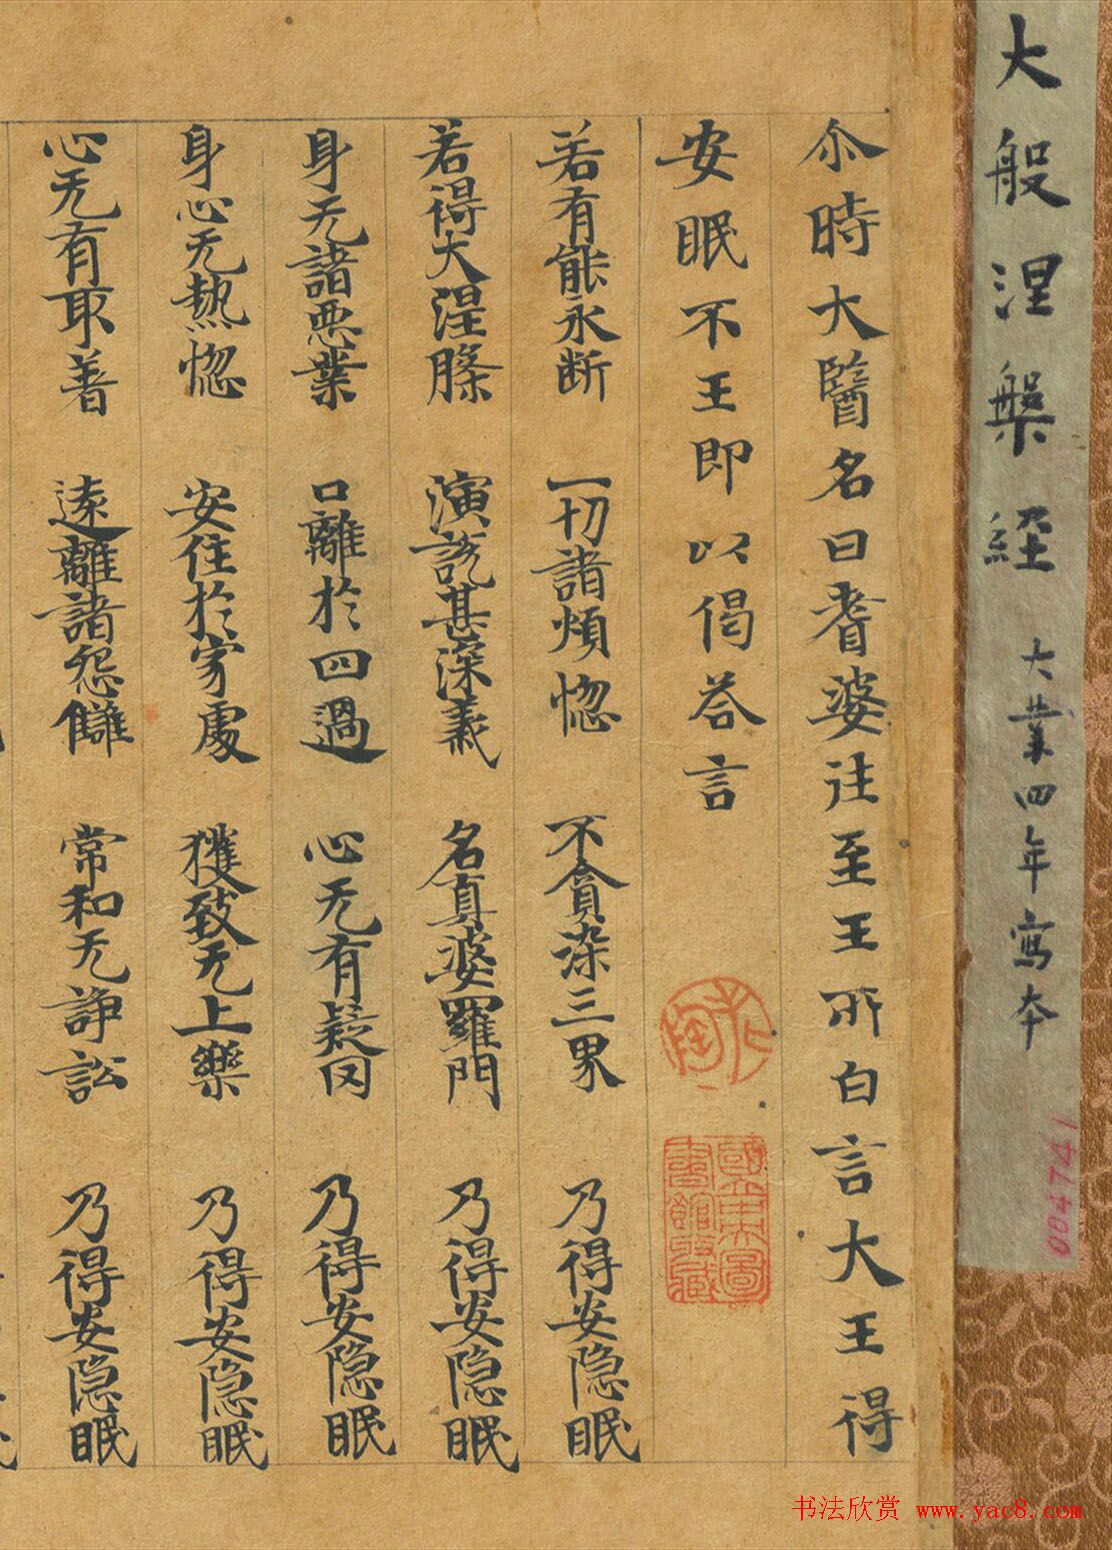 大般涅槃経 大業四年寫本
0047741
尒時大醫名曰耆婆往至王所白言大王得
安眠不王即以偈荅言
若有能永断 一切諸煩惚 不貪染三界 乃得安隐眠
若得大涅槃 演說甚深義 名真婆羅門 乃得安隐眠
身无諸惡業 口離於四過 心无有疑罔 乃得安隐眠
身心无热惚 安住於家處 獲致无上樂 乃得安隐眠
心无有取著 遠離諸怨讎 常和无諍訟 乃得安隐眠
國立中央圖書館收藏
书法欣赏 www.yac8.com